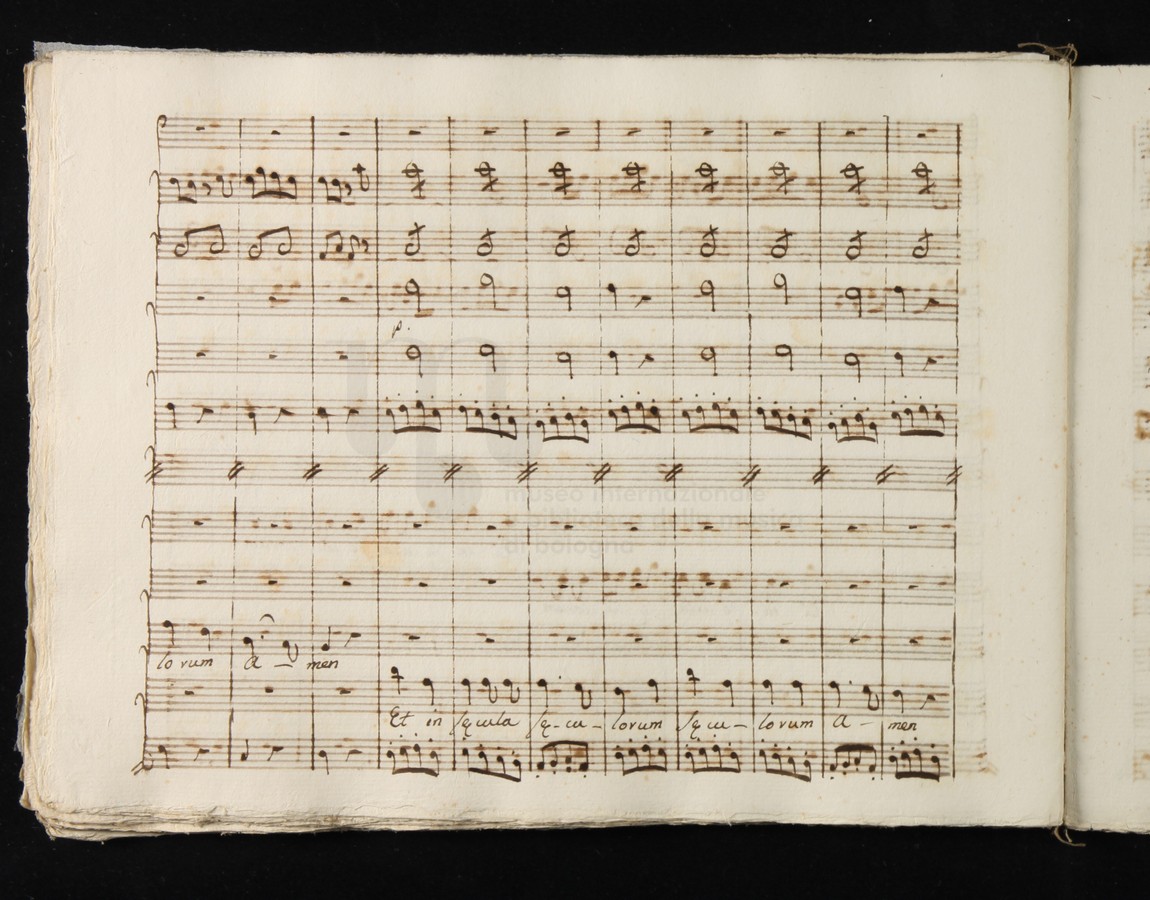 p.
lo rum A — men
Et in sęcula sę-cu-lorum sęcu-lorum A - men
museo internazionale
e biblioteca della musica
di bologna